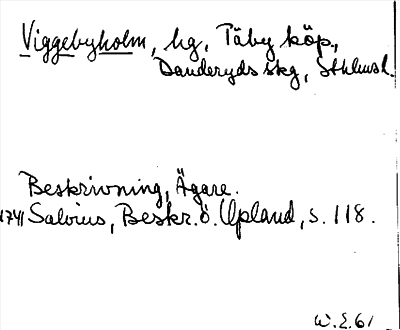 Viggebyholm, hg, Täby köp.,
Danderyds skg, Sthlmsl.
Beskrivning, Ägare.
1741 Salvius, Beskr. ö. Upland, s. 118.
W. E. 61